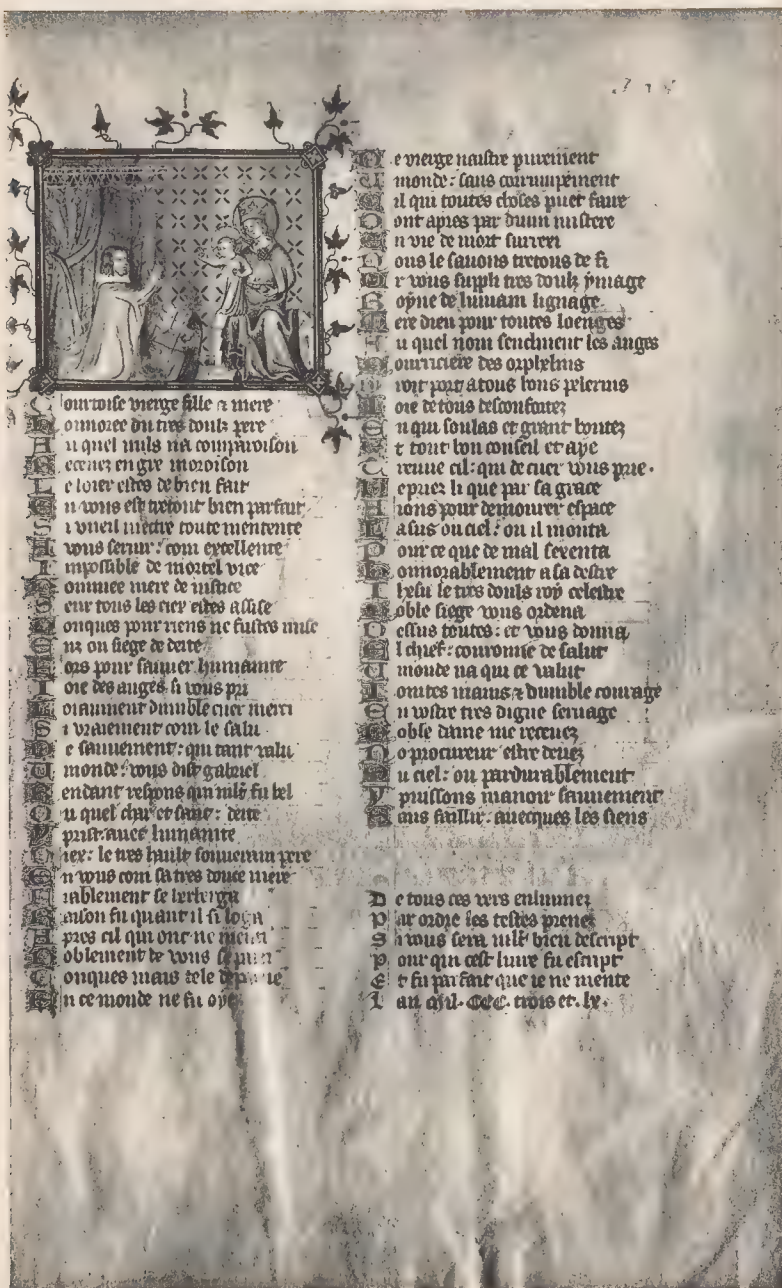 Courtoise vierge fille & mere
Honnoree du tres doulz pere
Au quel nuls na comparoison
Recevez en gre moroison
Le loier estes de bien fait
En vous est trestout bien parfait
Si vueil mectre toute mentente
A vous servir: com excellente
Impossible de mortel vice
Nommee mere de justice
Seur tous les ciex estes assise
Nonques pour riens ne fustes mise
Enz ou siege de deite
Fors pour sauver humanite
Ioie des anges si vous pri
Loiaument dumble cuer merci
Si vraiement com le salu
De sauvement: qui tant valu
U monde: vous dist gabriel
Rendant respons qui mlt fu bel
Ou quel char et sanc: deite
Y prist avec humanite
Diex: le tres hault souverain pere
En vous com sa tres douce mere
Fiablement se herberga
Raison fu quant il si loga
Apres cil qui onc ne menti
Noblement de vous se parti
Conques mais tele departie
En ce monde ne fu oye
De vierge naistre purement
U monde: sans corrumpement
Cil qui toutes choses puet faire
Dont apres par divin mistere
En vie de mort surrexi
Nous le savons trestous de fi
Or vous suppli tres doulz ymage
Royne de humain lignage
Mere dieu pour toutes loenges
Au quel nom senclinent les anges
Nourriciere des orphelins
Droit port a tous bons pelerins
Ioie de tous desconfortez
En qui soulas et grant bontez
Et tout bon conseil et aye
Treuve cil: qui de cuer vous prie.
Depriez li que par sa grace
Aions pour demourer espace
Lasus ou ciel: ou il monta
Pour ce que de mal sexenta
Honnorablement a sa destre
Ihesu le tres doulz roy celestre
Noble siege vous ordena
Dessus toutes: et vous donna
El chief: couronne de salut
U monde na qui ce valut
Iointes mains & dumble courage
En vostre tres digne servage
Noble dame me recevez
No procureur estre devez
Ou ciel: ou pardurablement
Y puissons manoir sauvement
Sans faillir: avecques les siens
De tous ces vers enluminez
Par ordre les testes prenez
Si vous sera mlt bien descript
Pour qui cest livre fu escript
Et fu parfait que ie ne mente
Lan mil. CCC. trois et. lx.